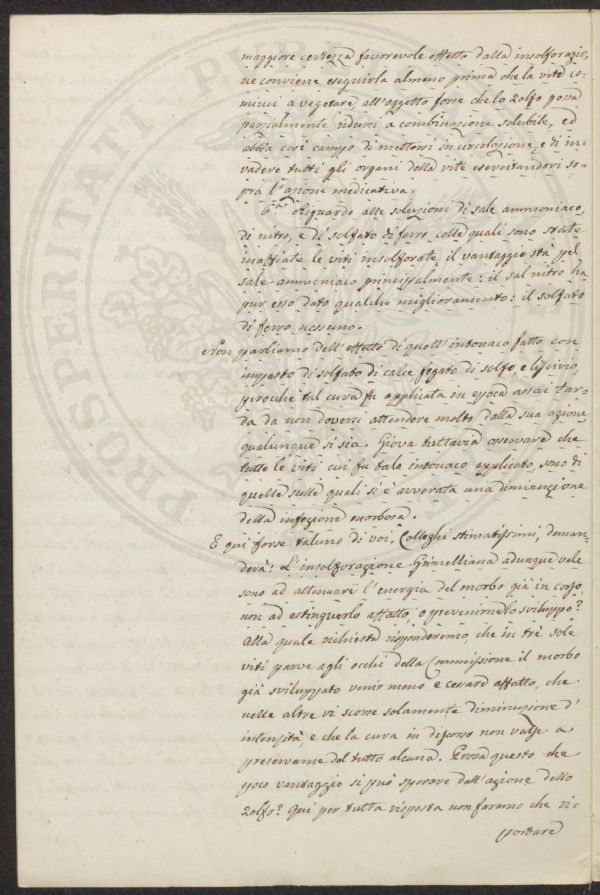 maggiore certezza favorevole effetto dalla insolforazio-
ne conviene eseguirla almeno prima che la vite co-
minci a vegetare, all'oggetto forse che lo Zolfo possa
parzialmente ridursi a combinazione solubile, ed
abbia così campo di mettersi in circolazione, e di in-
vadere tutti gli organi della vite esercitandovi so-
pra l'azione medicativa.
6.° Riguardo alle soluzioni di sale ammoniaco,
di nitro, e di solfato di ferro colle quali sono state
inaffiate le viti insolforate, il vantaggio stà pel
sale ammoniaco principalmente: il sal nitro ha
pur esso dato qualche miglioramento: il solfato
di ferro nessuno.
Non parliamo dell'effetto di quell'intonaco fatto con
impasto di solfato di calce fegato di solfo, e liscivio,
perocchè tal cura fu applicata in epoca assai tar-
da da non doversi attendere molto dalla sua azione
qualunque si sia. Giova tuttavia osservare che
tutte le viti cui fu tale intonaco applicato, sono di
quelle sulle quali si è avverata una diminuzione
della infezione morbosa.
E qui forse taluno di voi, Colleghi stimatissimi, doman-
derà: L'insolforazione Grimelliana adunque vale
sono ad attenuare l'energia del morbo già in corso,
non ad estinguerlo affatto o prevenirne lo sviluppo?
Alla quale richiesta risponderemo, che in trè sole
viti parve agli occhi della Commissione il morbo
già sviluppato venir meno e cessare affatto, che
nelle altre vi scorse solamente diminuzione d'
intensità, e che la cura in discorso non valse a
preservarne del tutto alcuna. Prova questo che
poco vantaggio si può sperare dall'azione dello
Zolfo? Qui per tutta risposta non faremo che ri-
portare
PROSPERITAT PUB